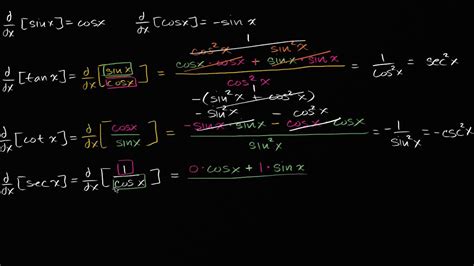 d/dx [sin x] = cos x    d/dx [cos x] = -sin x
1
cos²x    sin²x
d/dx [tan x] = d/dx [sin x / cos x] = (cos x · cos x + sin x · sin x) / cos²x = 1/cos²x = sec²x
-(sin²x + cos²x)
-sin²x - cos²x
d/dx [cot x] = d/dx [cos x / sin x] = (-sin x · sin x - cos x · cos x) / sin²x = -1/sin²x = -csc²x
d/dx [sec x] = d/dx [1 / cos x] = 0 · cos x + 1 · sin x